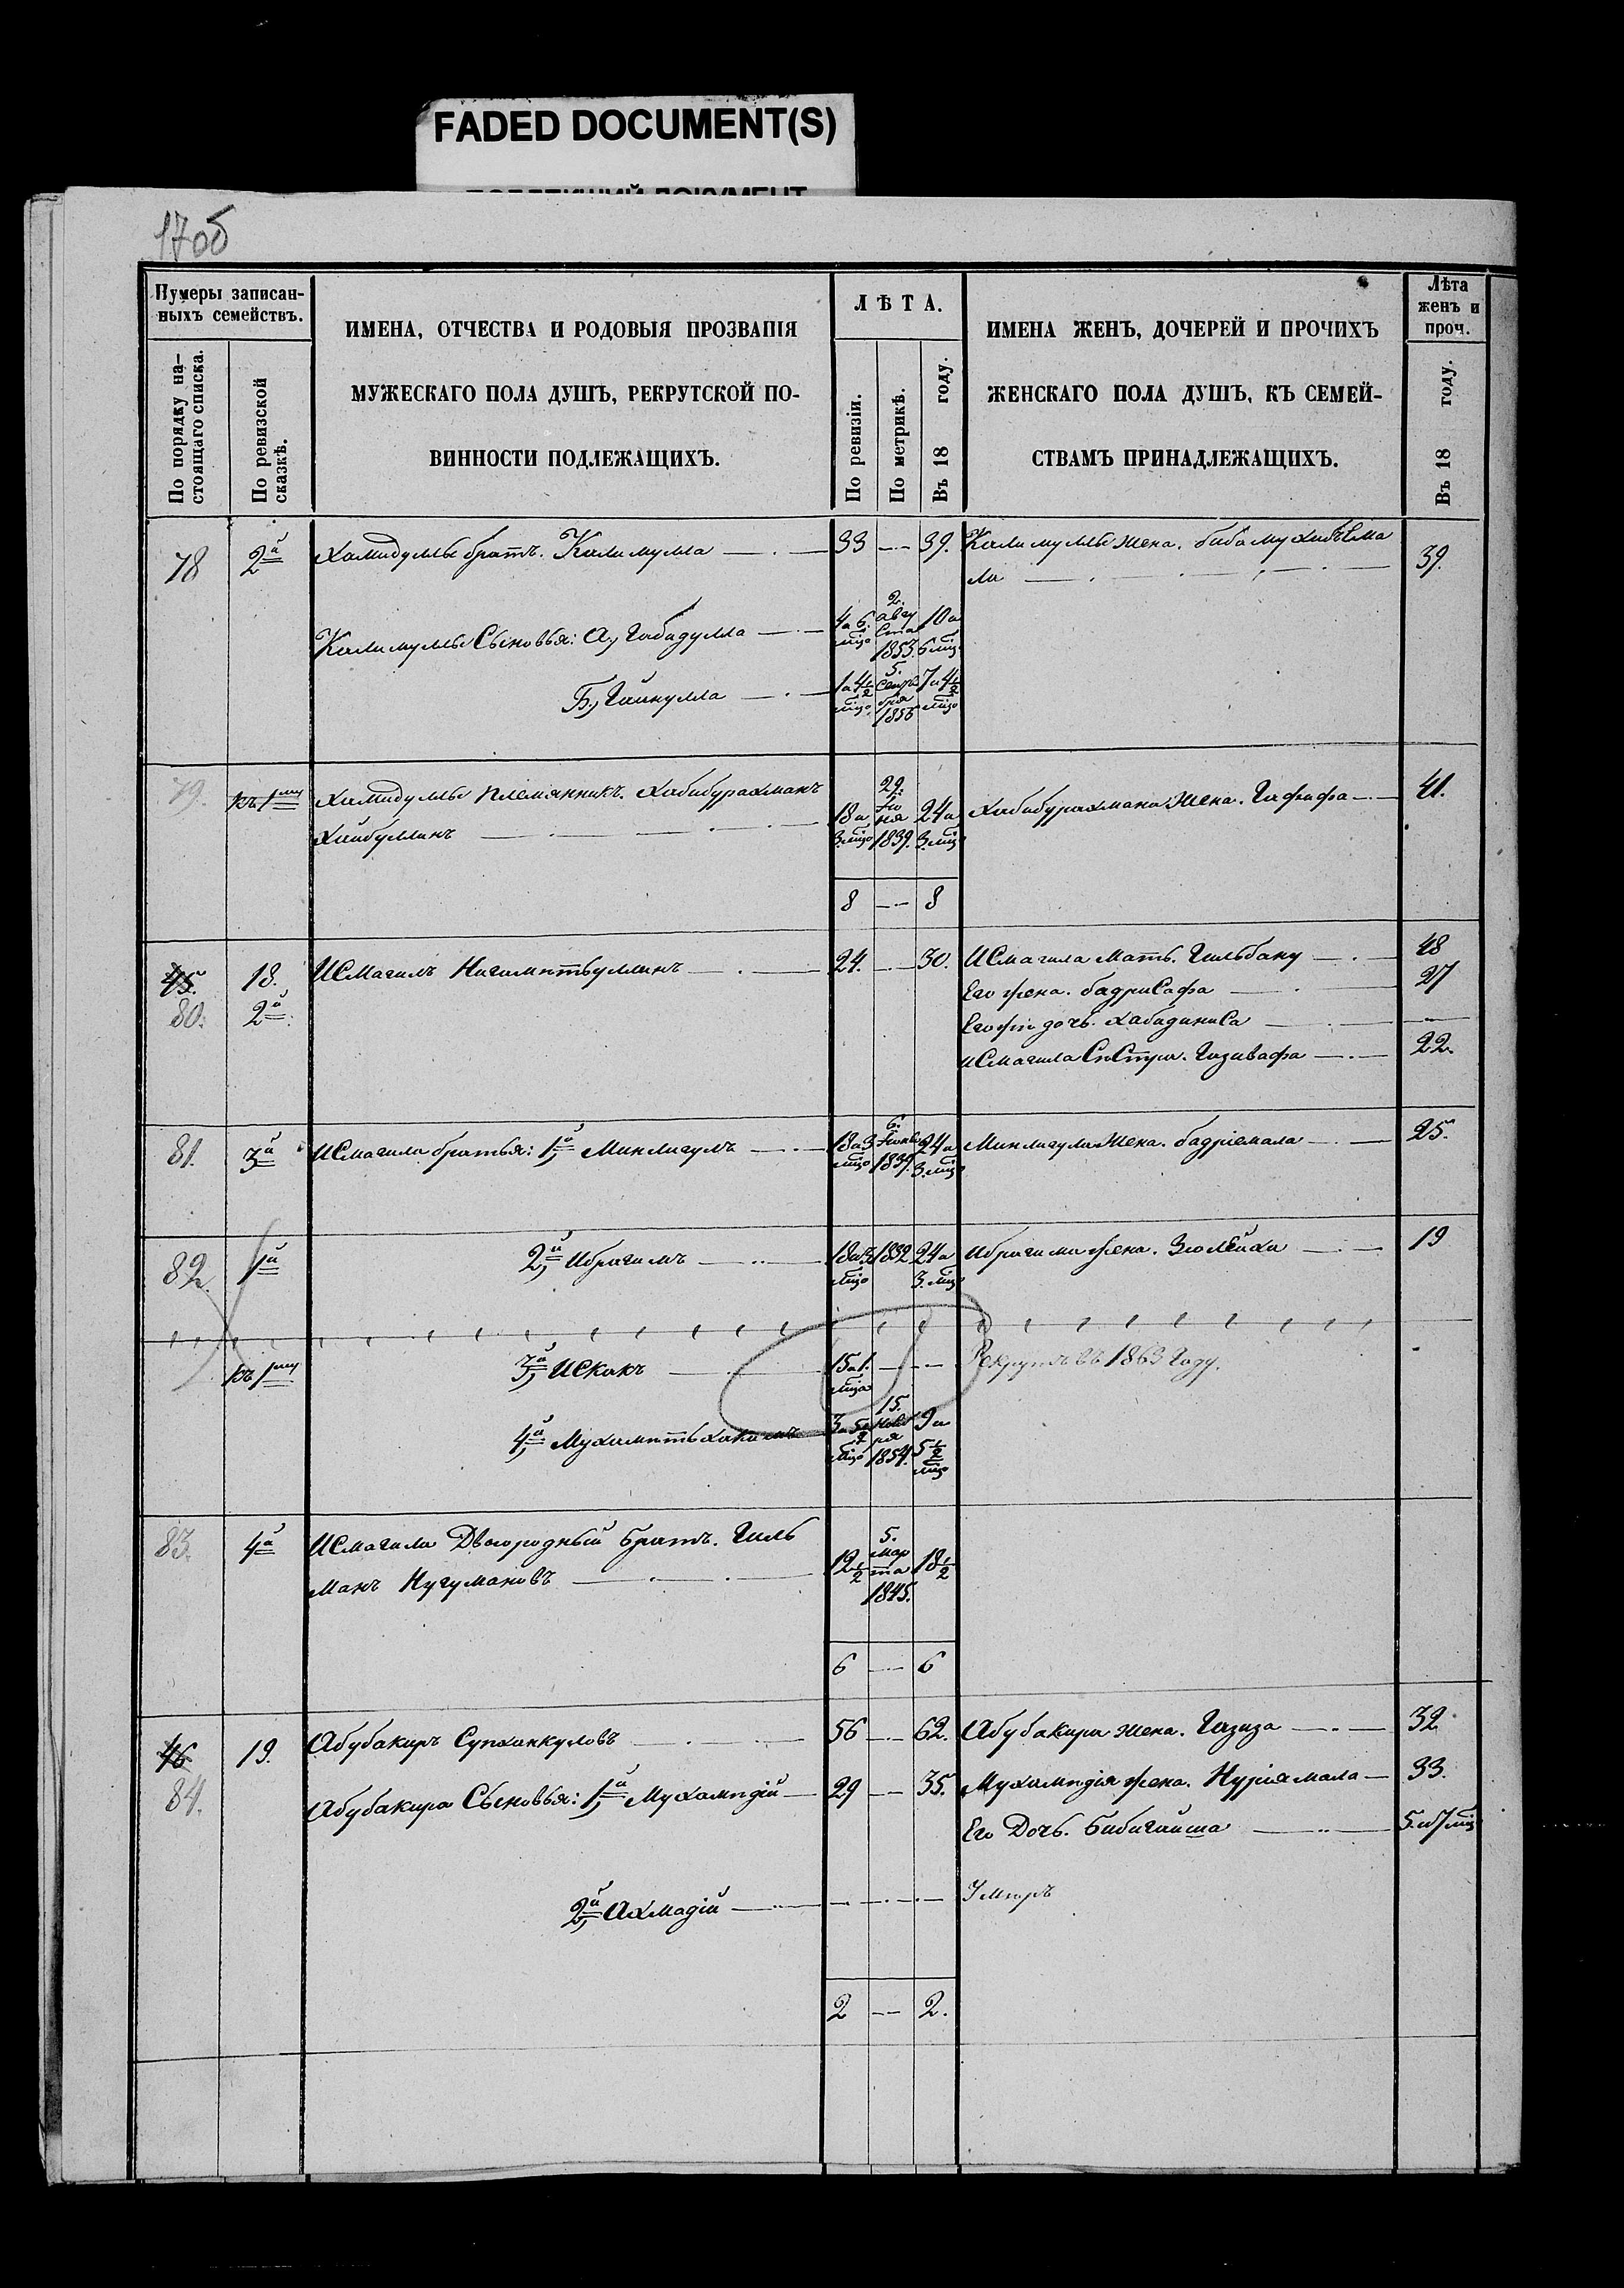 FADED DOCUMENT(S)
17об
Нумеры записан-
ныхъ семействъ.
По порядку на-
стоящаго списка.
По ревизской
сказкѣ.
ИМЕНА, ОТЧЕСТВА И РОДОВЫЯ ПРОЗВАНІЯ
МУЖЕСКАГО ПОЛА ДУШЪ, РЕКРУТСКОЙ ПО-
ВИННОСТИ ПОДЛЕЖАЩИХЪ.
ЛѢТА.
По ревизіи.
По метрикѣ.
Въ 18 году.
ИМЕНА ЖЕНЪ, ДОЧЕРЕЙ И ПРОЧИХЪ
ЖЕНСКАГО ПОЛА ДУШЪ, КЪ СЕМЕЙ-
СТВАМЪ ПРИНАДЛЕЖАЩИХЪ.
Лѣта
женъ и
проч.
Въ 18 году.
78 2й Хамидуллы братъ. Калимулла 33 39. Калимуллы жена.
39.
Калимуллы Сыновья: А, Габадулла 4 и 6 мцо 2. августа 1853. 10 и 6 мцо
Б, Гайнулла 1 и 4 1/2 мцо 5. 1856 7 и 4 1/2 мцо
79. къ 1му Хамидуллы племянникъ. Хабибурахманъ
Хайбуллинъ 18 и 3 мцо 29. Іюня 1839. 24 и 3 мцо Хабибурахмана жена. Гафифа 41.
8 8
45. 18. Исмагилъ Нигаметьуллинъ 24. 30. Исмагила мать. Гильбану 48
80. 2й Его жена. Бадрисафа 27
Его же дочь. Хабадиниса
Исмагила Сестра. Газизафа 22.
81. 3й Исмагила братья: 1й, Минлигулъ 18 и 3 мцо 6. 1839. 24 и 3 мцо Минлигула жена. Бадріемала 25.
82. 1й 2й, Ибрагимъ 18 и 3 мцо 1832 24 и 3 мцо Ибрагима жена. Зюлейха 19
къ 1му 3й, Искакъ 15 и 1. мца Рекрутъ въ 1863 году.
4й, Мухаметьхакимъ 3 и 5 1/2 мцо 15. Ноября 1854. 9 и 5 1/2 мцо
83. 4й Исмагила Двоюродный братъ. Гиль
манъ Нугумановъ 12 1/2 5. марта 1845. 18 1/2
6 6
46 19. Абубакиръ Супханкуловъ 56 62. Абубакира жена. Газиза 32
84. Абубакира Сыновья: 1й, Мухамедій 29 35. Мухамедія жена. Нуріямала 33.
Его Дочь. Бибигайша 5. и 7 мцо
2й, Ахмадій Умеръ
2 2.